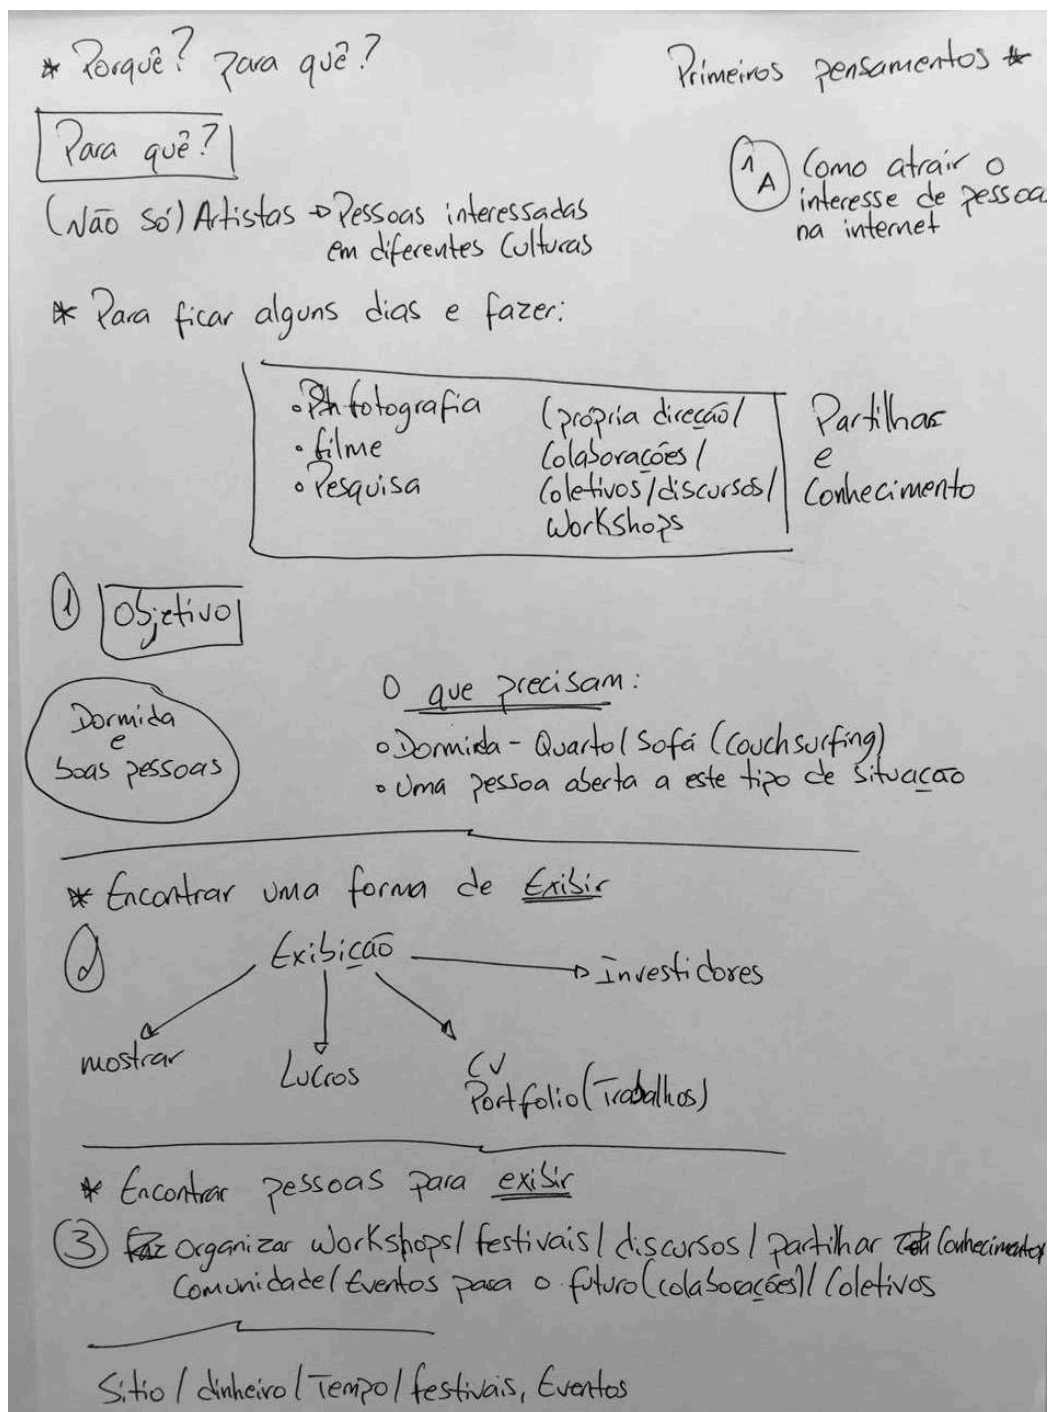 * Porquê? Para quê?
Primeiros pensamentos *
Para quê?
1A Como atrair o
interesse de pessoa
na internet
(Não só) Artistas → Pessoas interessadas
em diferentes Culturas
* Para ficar alguns dias e fazer:
• fotografia
• filme
• Pesquisa
(própria direção/
Colaborações/
Coletivos/discursos/
Workshops
Partilhas
e
Conhecimento
1 Objetivo
Dormida
e
boas pessoas
O que precisam:
• Dormida - Quarto/Sofá (Couchsurfing)
• Uma pessoa aberta a este tipo de situação
* Encontrar uma forma de Exibir
2
Exibição → Investidores
mostrar
Lucros
CV
Portfolio (Trabalhos)
* Encontrar pessoas para exibir
3 Organizar Workshops/festivais/discursos/partilhar Conhecimentos
Comunidade/Eventos para o futuro (colaborações)/Coletivos
Sitio/dinheiro/Tempo/festivais, Eventos